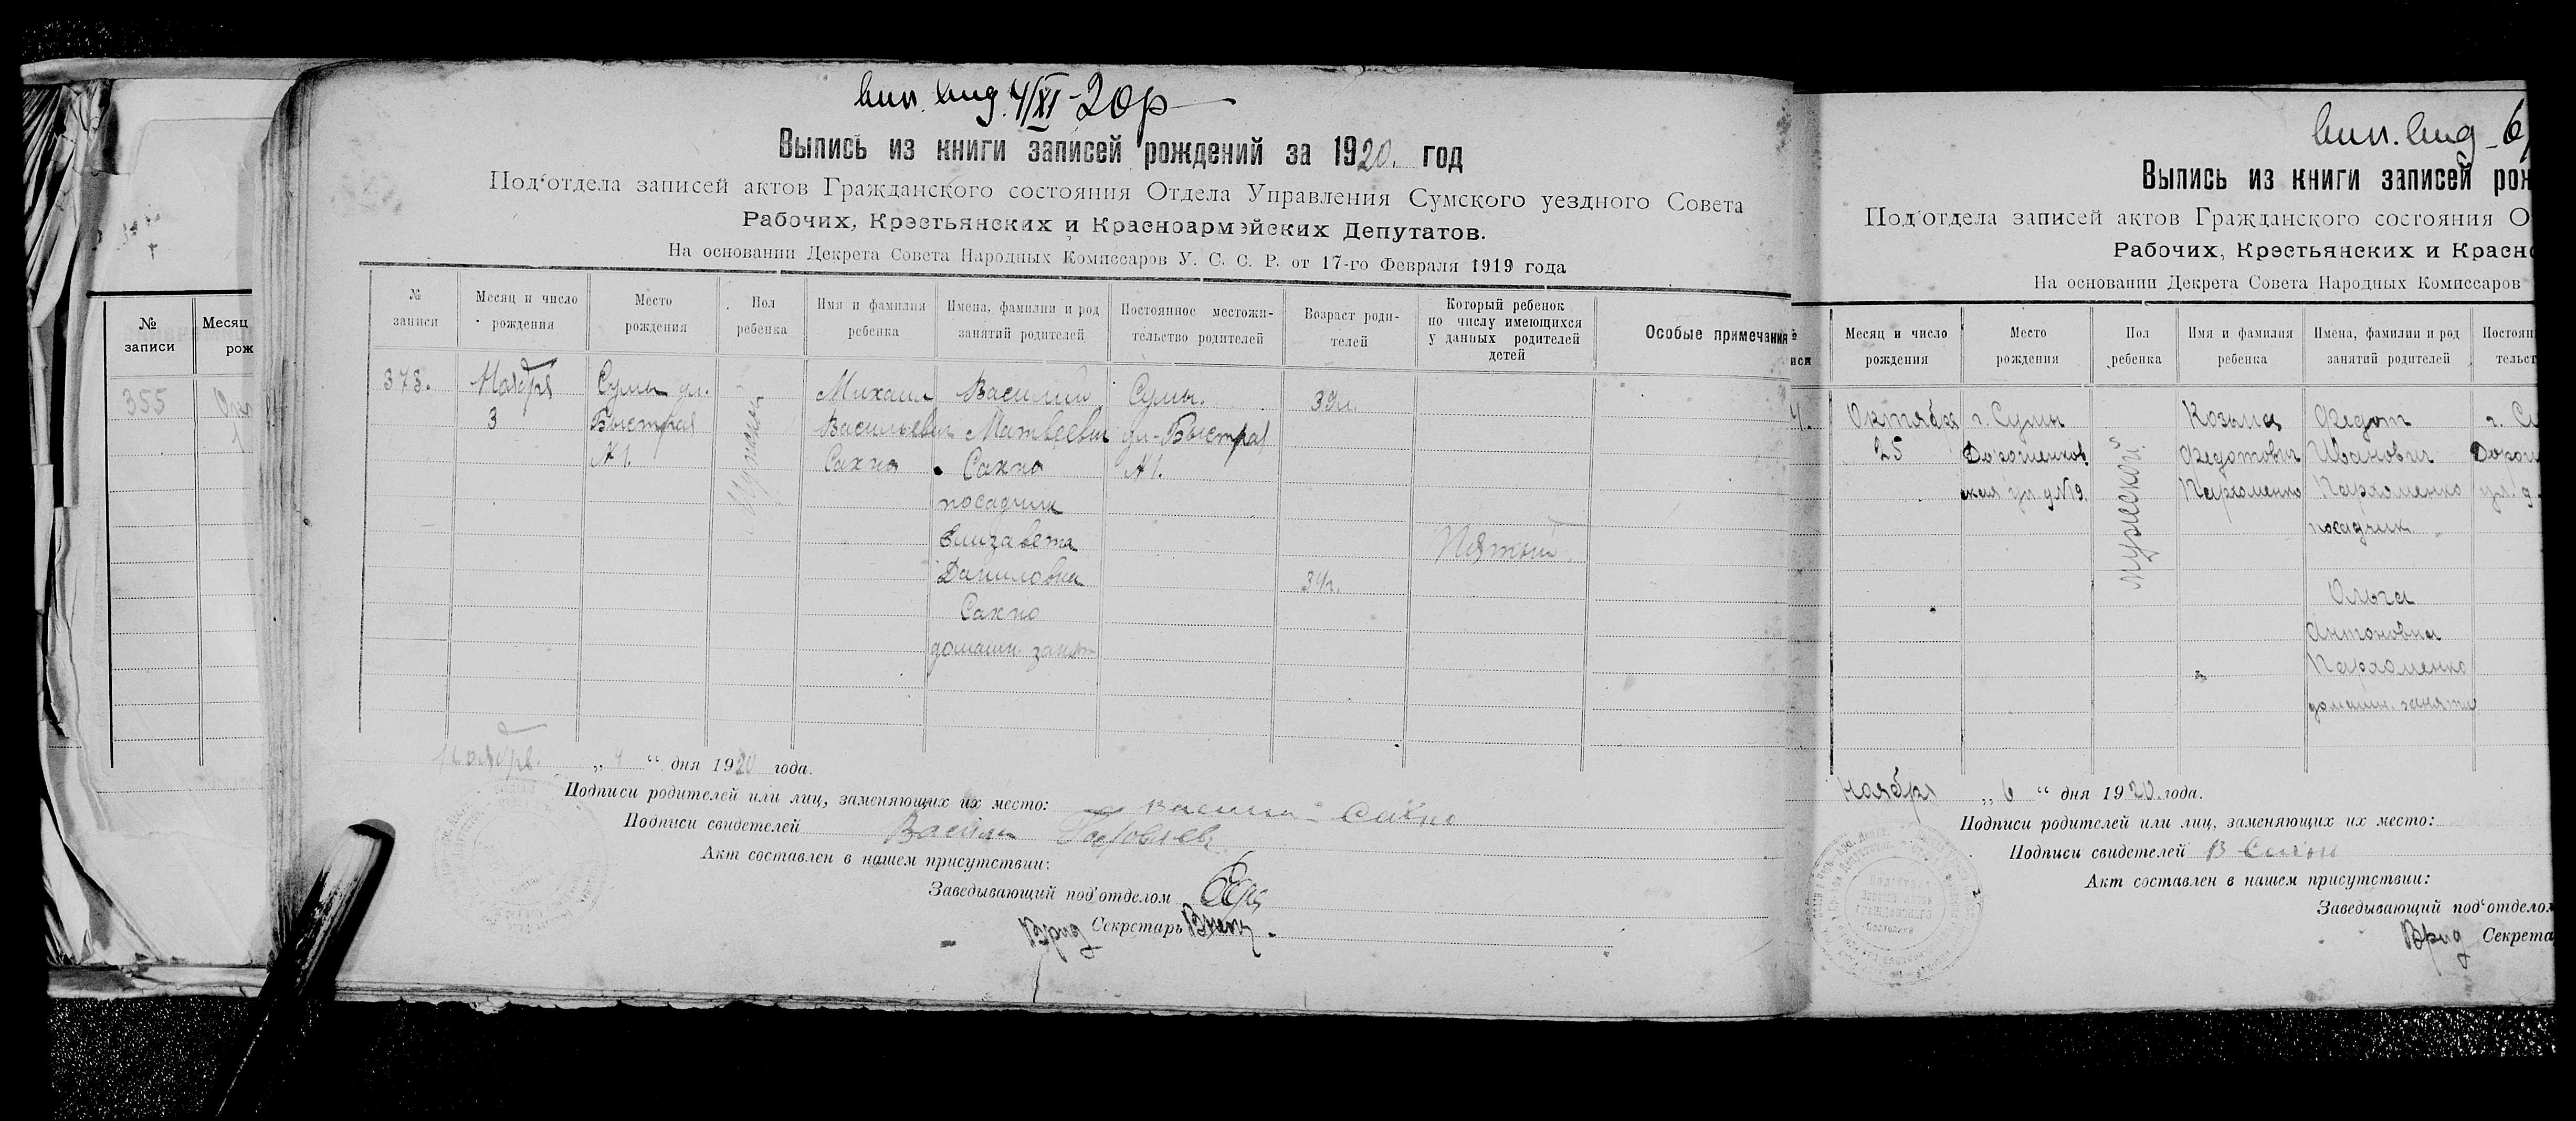 вип. вид. 4/XI-20р
Выпись из книги записей рождений за 1920. год
Под'отдела записей актов Гражданского состояния Отдела Управления Сумского уездного Совета
Рабочих, Крестьянских и Красноармейских Депутатов.
На основании Декрета Совета Народных Комиссаров У. С. С. Р. от 17-го Февраля 1919 года
№ записи
Месяц и число рождения
Место рождения
Пол ребенка
Имя и фамилия ребенка
Имена, фамилии и род занятий родителей
Постоянное местожительство родителей
Возраст родителей
Который ребенок по числу имеющихся у данных родителей детей
Особые примечания
373.
Ноября
3
Сумы ул.
Быстрая
№ 1.
Мужской
Михаил
Васильевич
Сахно
Василий
Матвеевич
Сахно
посадчик
Елизавета
Даниловна
Сахно
домашн. занят
Сумы.
ул. Быстрая
№ 1.
39л.
34г.
Пятый.
Ноября. „ 4 “ дня 1920 года.
Подписи родителей или лиц, заменяющих их место: Василий Сахно
Подписи свидетелей Василий
Акт составлен в нашем присутствии:
Заведывающий под'отделом
Врид Секретарь
№ записи
Месяц
рож
355
вип. вид - 6/
Выпись из книги записей рож
Под'отдела записей актов Гражданского состояния О
Рабочих, Крестьянских и Красно
На основании Декрета Совета Народных Комиссаров
Месяц и число рождения
Место рождения
Пол ребенка
Имя и фамилия ребенка
Имена, фамилии и род занятий родителей
Постоян
тельст
Октября
25
г. Сумы
ская ул. д № 9.
Мужской
Козьма
Федотович
Пархоменко
Федот
Иванович
Пархоменко
посадчик
Ольга
Антоновна
Пархоменко
домашн. заняти
г. Су
ул. д.
Ноября „ 6 “ дня 1920. года.
Подписи родителей или лиц, заменяющих их место:
Подписи свидетелей В Сахно
Акт составлен в нашем присутствии:
Заведывающий под'отделом
Врид Секрета